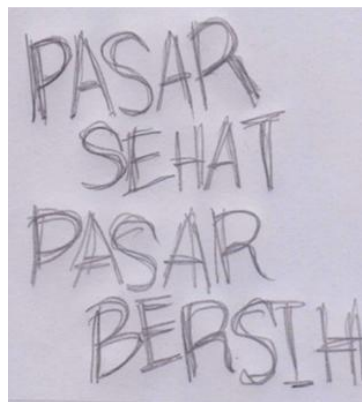 PASAR
SEHAT
PASAR
BERSIH